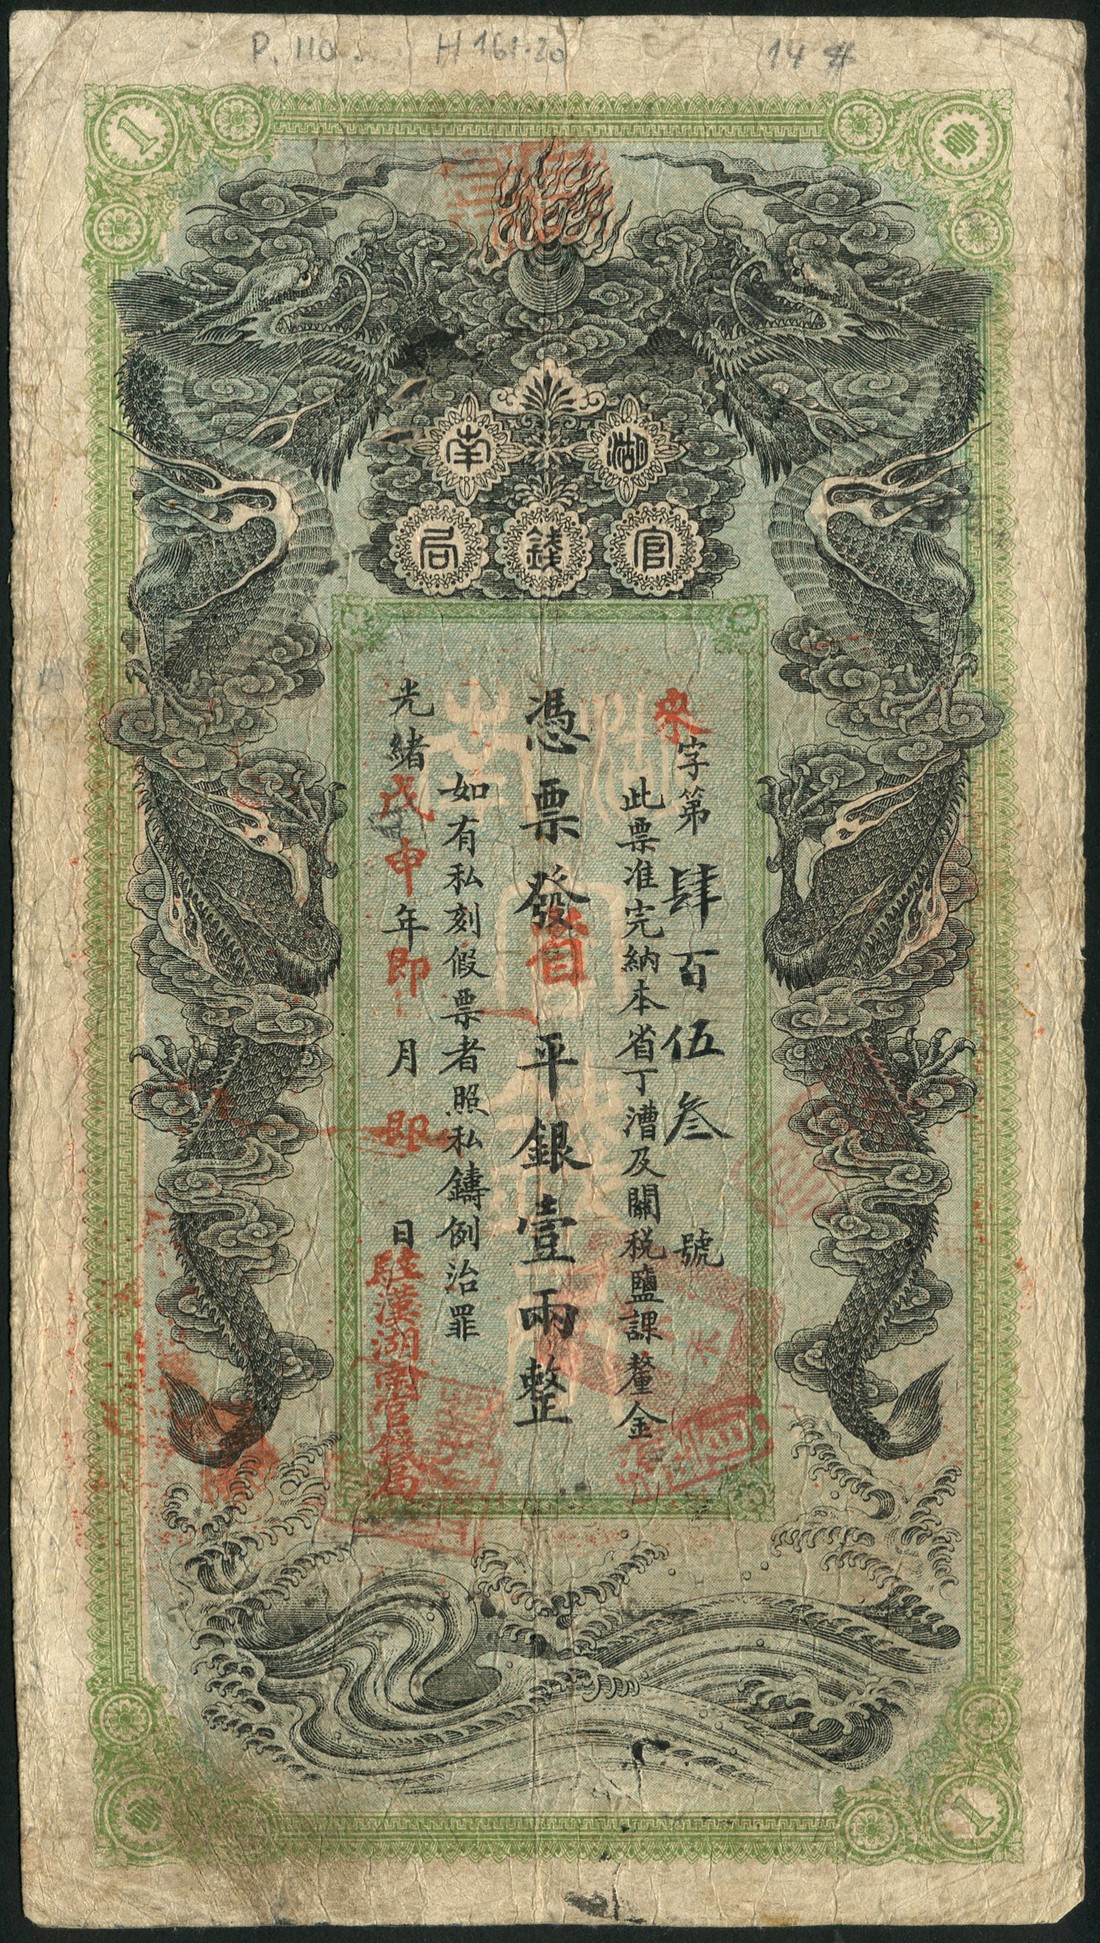 P. 110 H 161-20 14 #
1 壹
湖南
官錢局
來字第肆百伍叁號
此票准完納本省丁漕及關稅鹽課釐金
憑票發省平銀壹兩整
如有私刻假票者照私鑄例治罪
光緒戊申年即月即日
駐漢湖南官錢局
壹 1